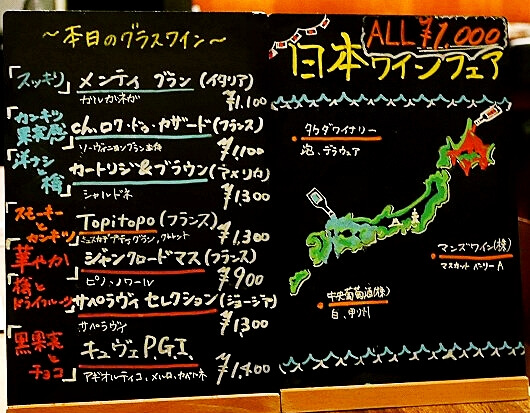 ～本日のグラスワイン～
「スッキリ」
メンティ ブラン(イタリア)
ガルガネガ
¥1,100
「カンキツ
果実感」
ch.ロック・ドゥ・カザード(フランス)
ソーヴィニヨンブラン主体
¥1,100
「洋ナシ
と樽」
カートリッジ&ブラウン(アメリカ)
シャルドネ
¥1300
「スモーキー
と
カンキツ」
Topitopo(フランス)
¥1,300
「華やか」
シャンクロードマス(フランス)
ピノ・ノワール
¥900
「樽と
ドライフルーツ」
サペラヴィ セレクション(ジョージア)
サペラヴィ
¥1300
「黒果実
と
チョコ」
キュヴェ P.G.I.
アギオルティコ、メルロ、カベルネ
¥1,400
ALL ¥1,000
日本ワインフェア
・タケダワイナリー
泡、デラウェア
・マンズワイン(株)
マスカットベーリーA
・中央葡萄酒(株)
白、甲州